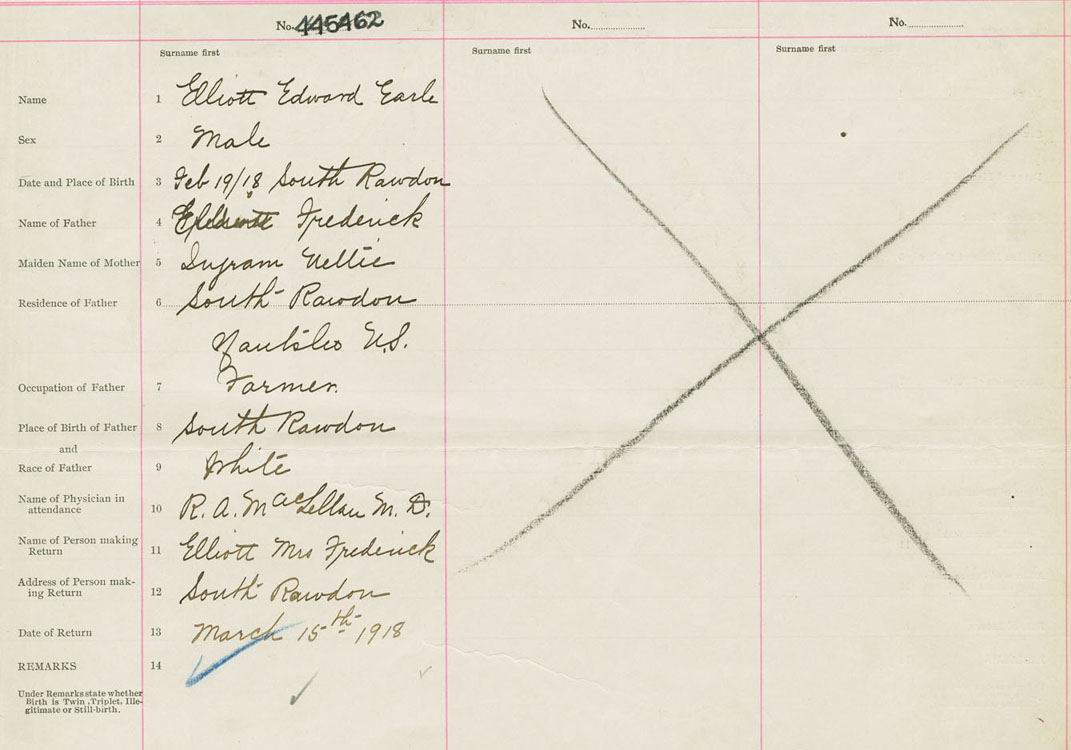 No. 445462
No.
No.
Surname first
Surname first
Surname first
Name 1 Elliott Edward Earle
Sex 2 Male
Date and Place of Birth 3 Feb 19/18 South Rawdon
Name of Father 4 Elliott Frederick
Maiden Name of Mother 5 Ingram Nellie
Residence of Father 6 South Rawdon
N.S.
Occupation of Father 7 Farmer.
Place of Birth of Father 8 South Rawdon
and
Race of Father 9 White
Name of Physician in
attendance 10 R. A. MacLellan M. D.
Name of Person making
Return 11 Elliott Mrs Frederick
Address of Person mak-
ing Return 12 South Rawdon
Date of Return 13 March 15th 1918
REMARKS 14
Under Remarks state whether
Birth is Twin, Triplet, Ille-
gitimate or Still-birth.